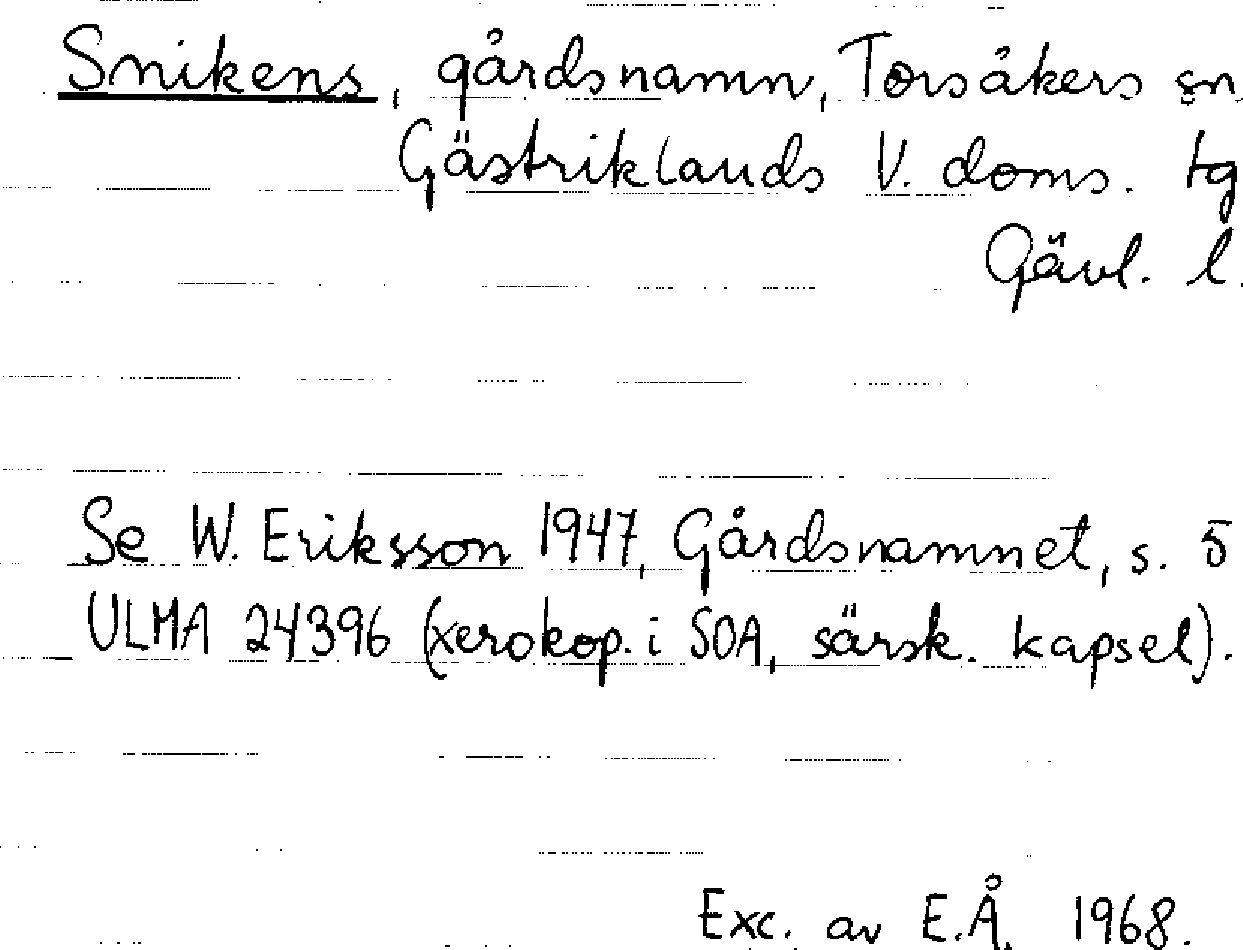 Snikens, gårdsnamn, Torsåkers sn
Gästriklands V. doms. tg
Gävl. l.
Se W. Eriksson 1947, Gårdsnamnet, s. 5
ULMA 24396 (xerokop. i SOA, särsk. kapsel).
Exc. av E.Å. 1968.